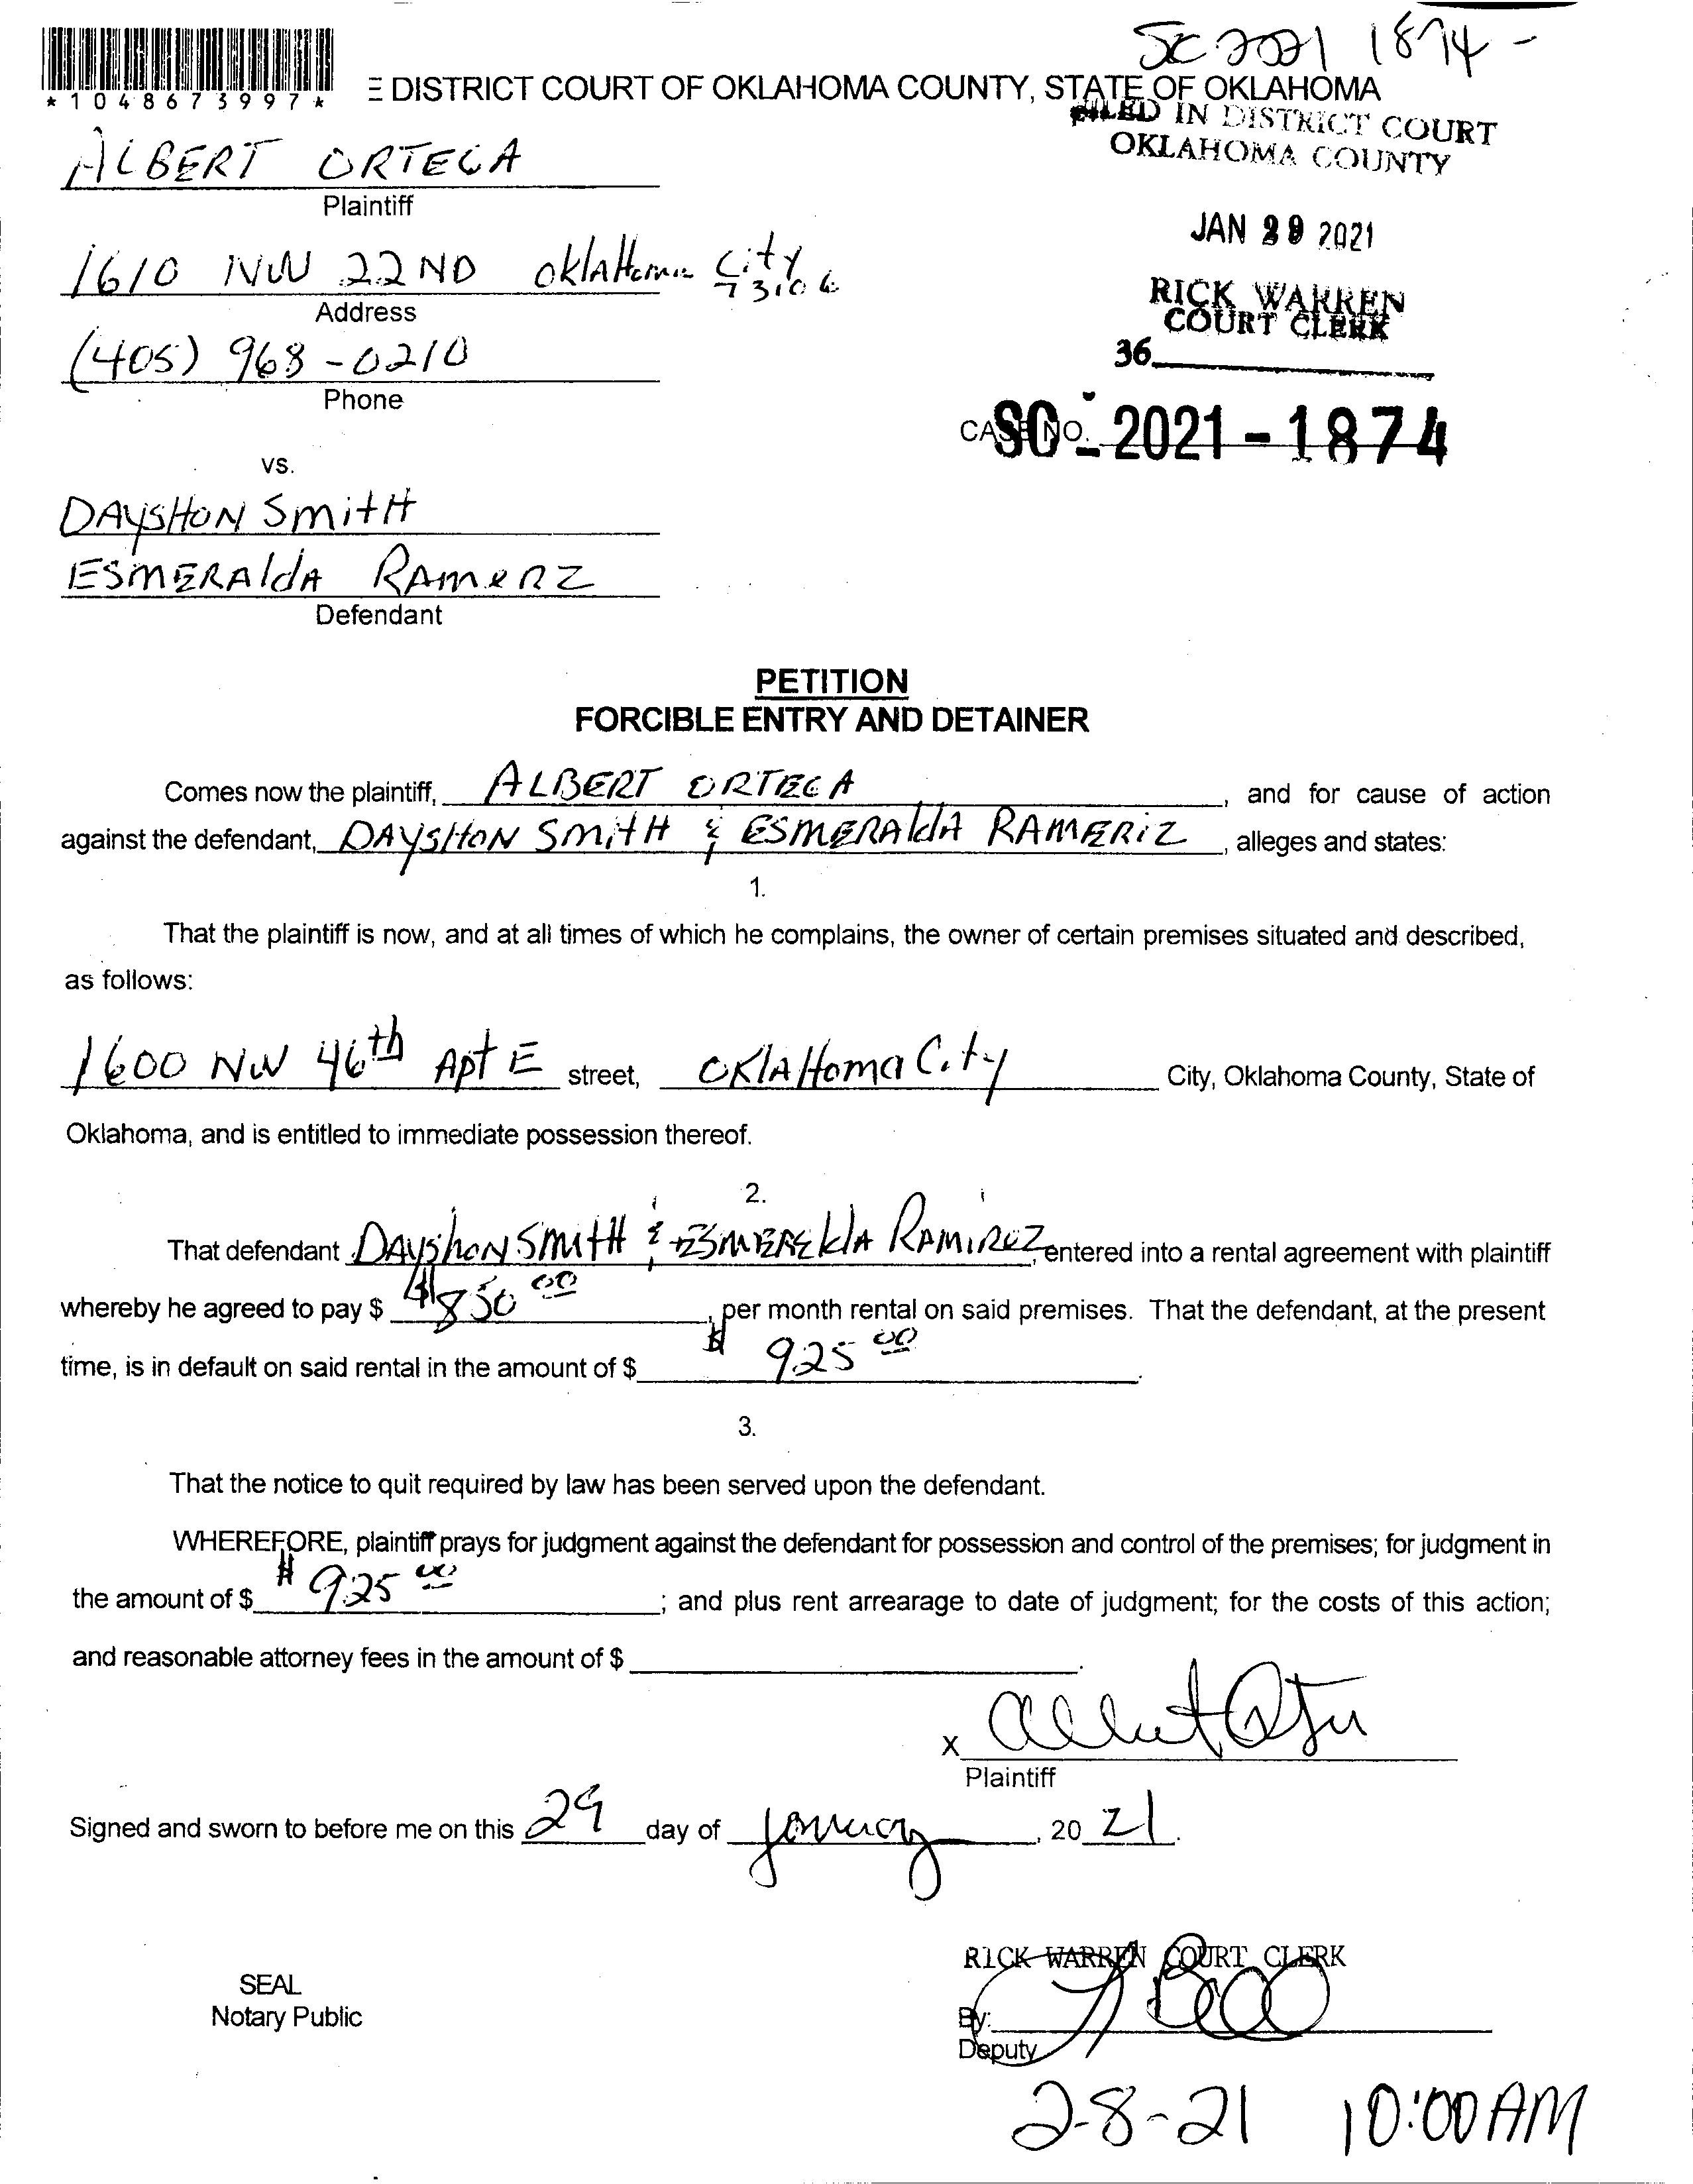 SC 2021 1874 -
*1048673997*
E DISTRICT COURT OF OKLAHOMA COUNTY, STATE OF OKLAHOMA
FILED IN DISTRICT COURT
OKLAHOMA COUNTY
ALBERT ORTEGA
Plaintiff
JAN 29 2021
1610 NW 22ND OklaHoma City
73106
Address
RICK WARREN
COURT CLERK
(405) 968-0210
36
Phone
CASE NO. SC - 2021 - 1874
vs.
DAYSHON SmitH
ESMERAldA RAMERZ
Defendant
PETITION
FORCIBLE ENTRY AND DETAINER
Comes now the plaintiff, ALBERT ORTEGA, and for cause of action
against the defendant, DAYSHON SMitH & ESMERAldA RAMERiZ, alleges and states:
1.
That the plaintiff is now, and at all times of which he complains, the owner of certain premises situated and described,
as follows:
1600 NW 46th Apt E street, OKlAHoma City City, Oklahoma County, State of
Oklahoma, and is entitled to immediate possession thereof.
2.
That defendant DAyshoN SmitH & ESMEREldA RAMIREZ, entered into a rental agreement with plaintiff
whereby he agreed to pay $ $850 00, per month rental on said premises. That the defendant, at the present
time, is in default on said rental in the amount of $ $925 00.
3.
That the notice to quit required by law has been served upon the defendant.
WHEREFORE, plaintiff prays for judgment against the defendant for possession and control of the premises; for judgment in
the amount of $ $925 00; and plus rent arrearage to date of judgment; for the costs of this action;
and reasonable attorney fees in the amount of $
X
Plaintiff
Signed and sworn to before me on this 29 day of January, 20 21.
RICK WARREN COURT CLERK
SEAL
Notary Public
By:
Deputy
2-8-21 10:00 AM